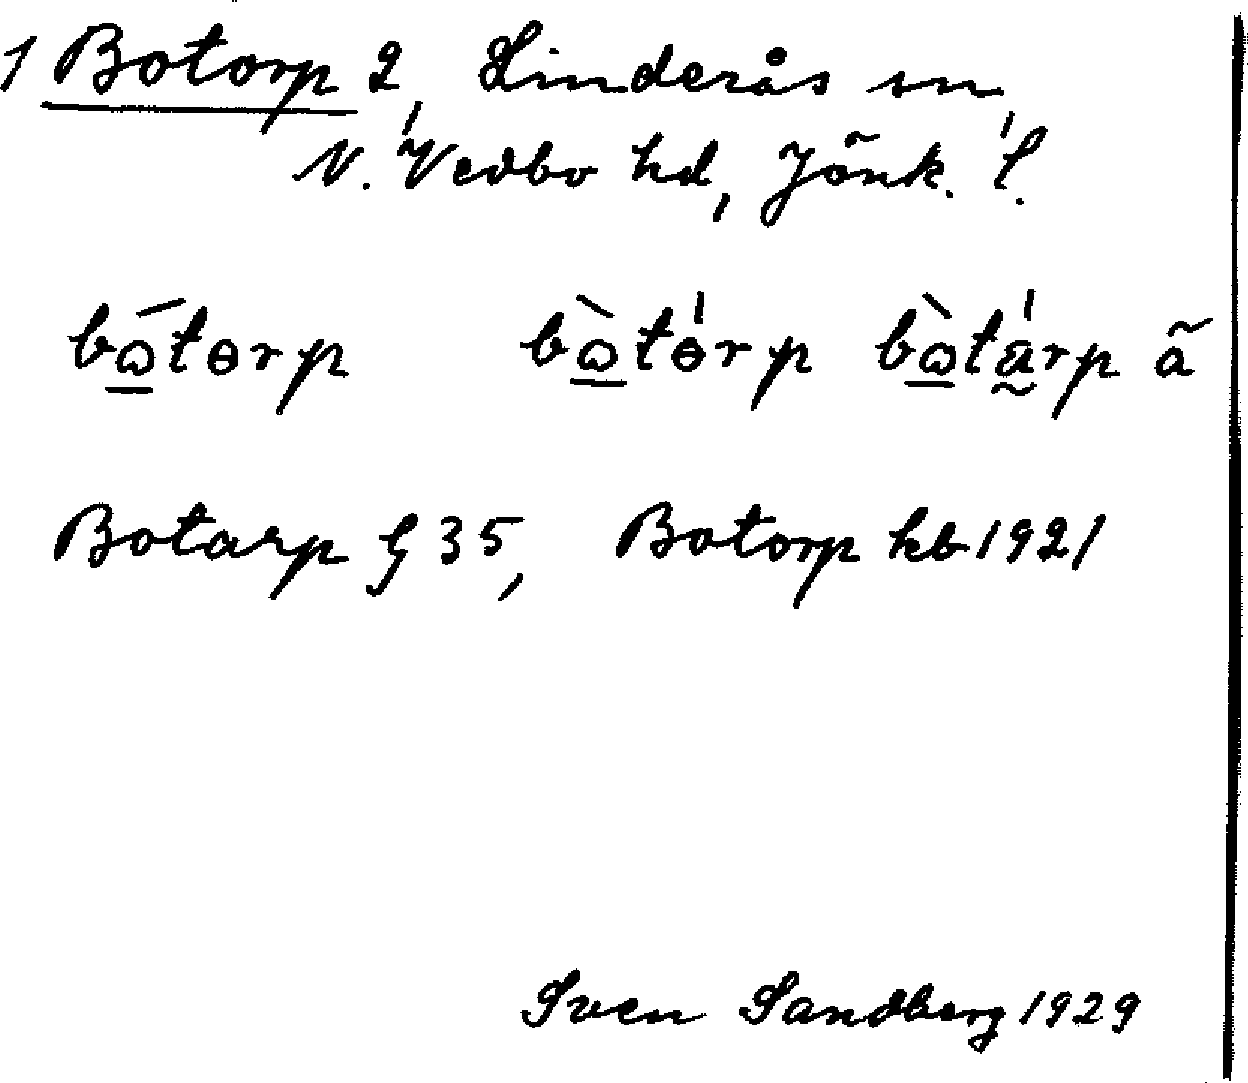 1 Botorp 2, Linderås sn,
N. Vedbo hd, Jönk. l.
bɷ́tɵrp bɷ̀tɵ̍rp bɷ̀ta̍rp ã
Botarp G 35, Botorp kb 1921
Sven Sandberg 1929